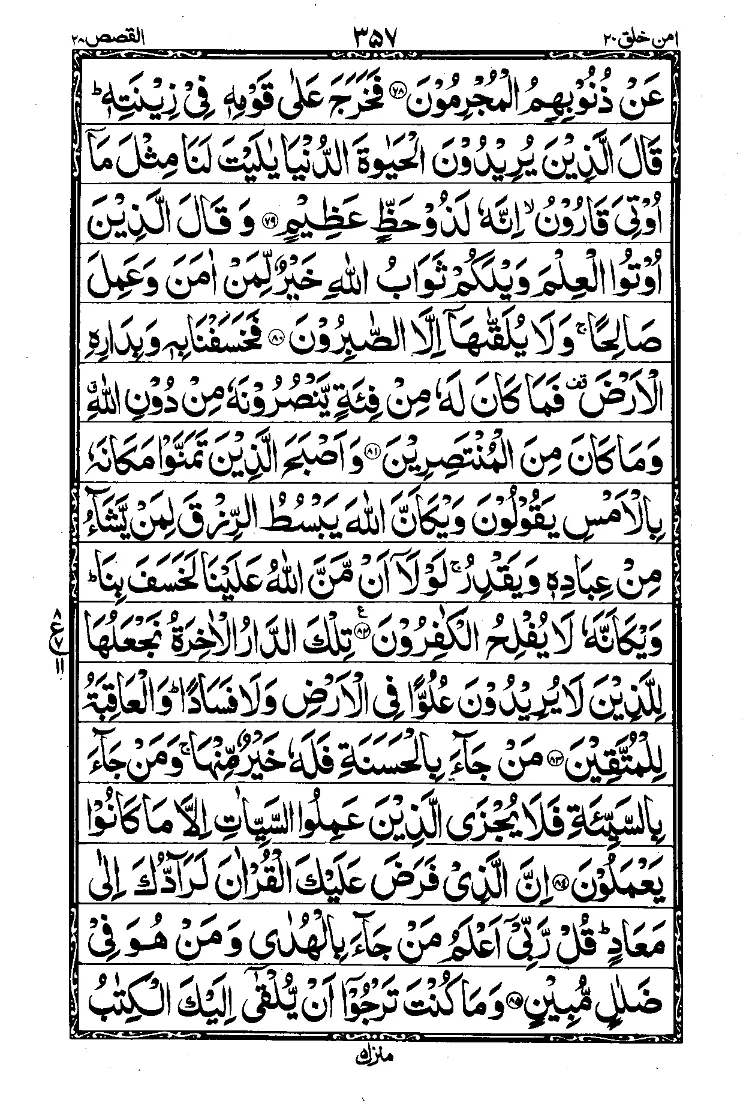 امن خلق ۲۰ ۳۵۷ القصص ۲۸
عَنْ ذُنُوْبِهِمُ الْمُجْرِمُوْنَ ﴿۷۸﴾ فَخَرَجَ عَلٰى قَوْمِهٖ فِیْ زِیْنَتِهٖ ؕ
قَالَ الَّذِیْنَ یُرِیْدُوْنَ الْحَیٰوةَ الدُّنْیَا یٰلَیْتَ لَنَا مِثْلَ مَاۤ
اُوْتِیَ قَارُوْنُ ۙ اِنَّهٗ لَذُوْ حَظٍّ عَظِیْمٍ ﴿۷۹﴾ وَ قَالَ الَّذِیْنَ
اُوْتُوا الْعِلْمَ وَیْلَكُمْ ثَوَابُ اللّٰهِ خَیْرٌ لِّمَنْ اٰمَنَ وَعَمِلَ
صَالِحًا ۚ وَلَا یُلَقّٰىهَاۤ اِلَّا الصّٰبِرُوْنَ ﴿۸۰﴾ فَخَسَفْنَا بِهٖ وَبِدَارِهِ
الْاَرْضَ ۫ فَمَا كَانَ لَهٗ مِنْ فِئَةٍ یَّنْصُرُوْنَهٗ مِنْ دُوْنِ اللّٰهِ ۗ
وَمَا كَانَ مِنَ الْمُنْتَصِرِیْنَ ﴿۸۱﴾ وَاَصْبَحَ الَّذِیْنَ تَمَنَّوْا مَكَانَهٗ
بِالْاَمْسِ یَقُوْلُوْنَ وَیْكَاَنَّ اللّٰهَ یَبْسُطُ الرِّزْقَ لِمَنْ یَّشَآءُ
مِنْ عِبَادِهٖ وَیَقْدِرُ ۚ لَوْلَاۤ اَنْ مَّنَّ اللّٰهُ عَلَیْنَا لَخَسَفَ بِنَا ؕ
وَیْكَاَنَّهٗ لَا یُفْلِحُ الْكٰفِرُوْنَ ﴿۸۲﴾ تِلْكَ الدَّارُ الْاٰخِرَةُ نَجْعَلُهَا
۸ ع ۷ ۱۱
لِلَّذِیْنَ لَا یُرِیْدُوْنَ عُلُوًّا فِی الْاَرْضِ وَلَا فَسَادًا ؕ وَالْعَاقِبَةُ
لِلْمُتَّقِیْنَ ﴿۸۳﴾ مَنْ جَآءَ بِالْحَسَنَةِ فَلَهٗ خَیْرٌ مِّنْهَا ۚ وَمَنْ جَآءَ
بِالسَّیِّئَةِ فَلَا یُجْزَى الَّذِیْنَ عَمِلُوا السَّیِّاٰتِ اِلَّا مَا كَانُوْا
یَعْمَلُوْنَ ﴿۸۴﴾ اِنَّ الَّذِیْ فَرَضَ عَلَیْكَ الْقُرْاٰنَ لَرَآدُّكَ اِلٰى
مَعَادٍ ؕ قُلْ رَّبِّیْۤ اَعْلَمُ مَنْ جَآءَ بِالْهُدٰى وَمَنْ هُوَ فِیْ
ضَلٰلٍ مُّبِیْنٍ ﴿۸۵﴾ وَمَا كُنْتَ تَرْجُوْۤا اَنْ یُّلْقٰۤى اِلَیْكَ الْكِتٰبُ
منزل ۵